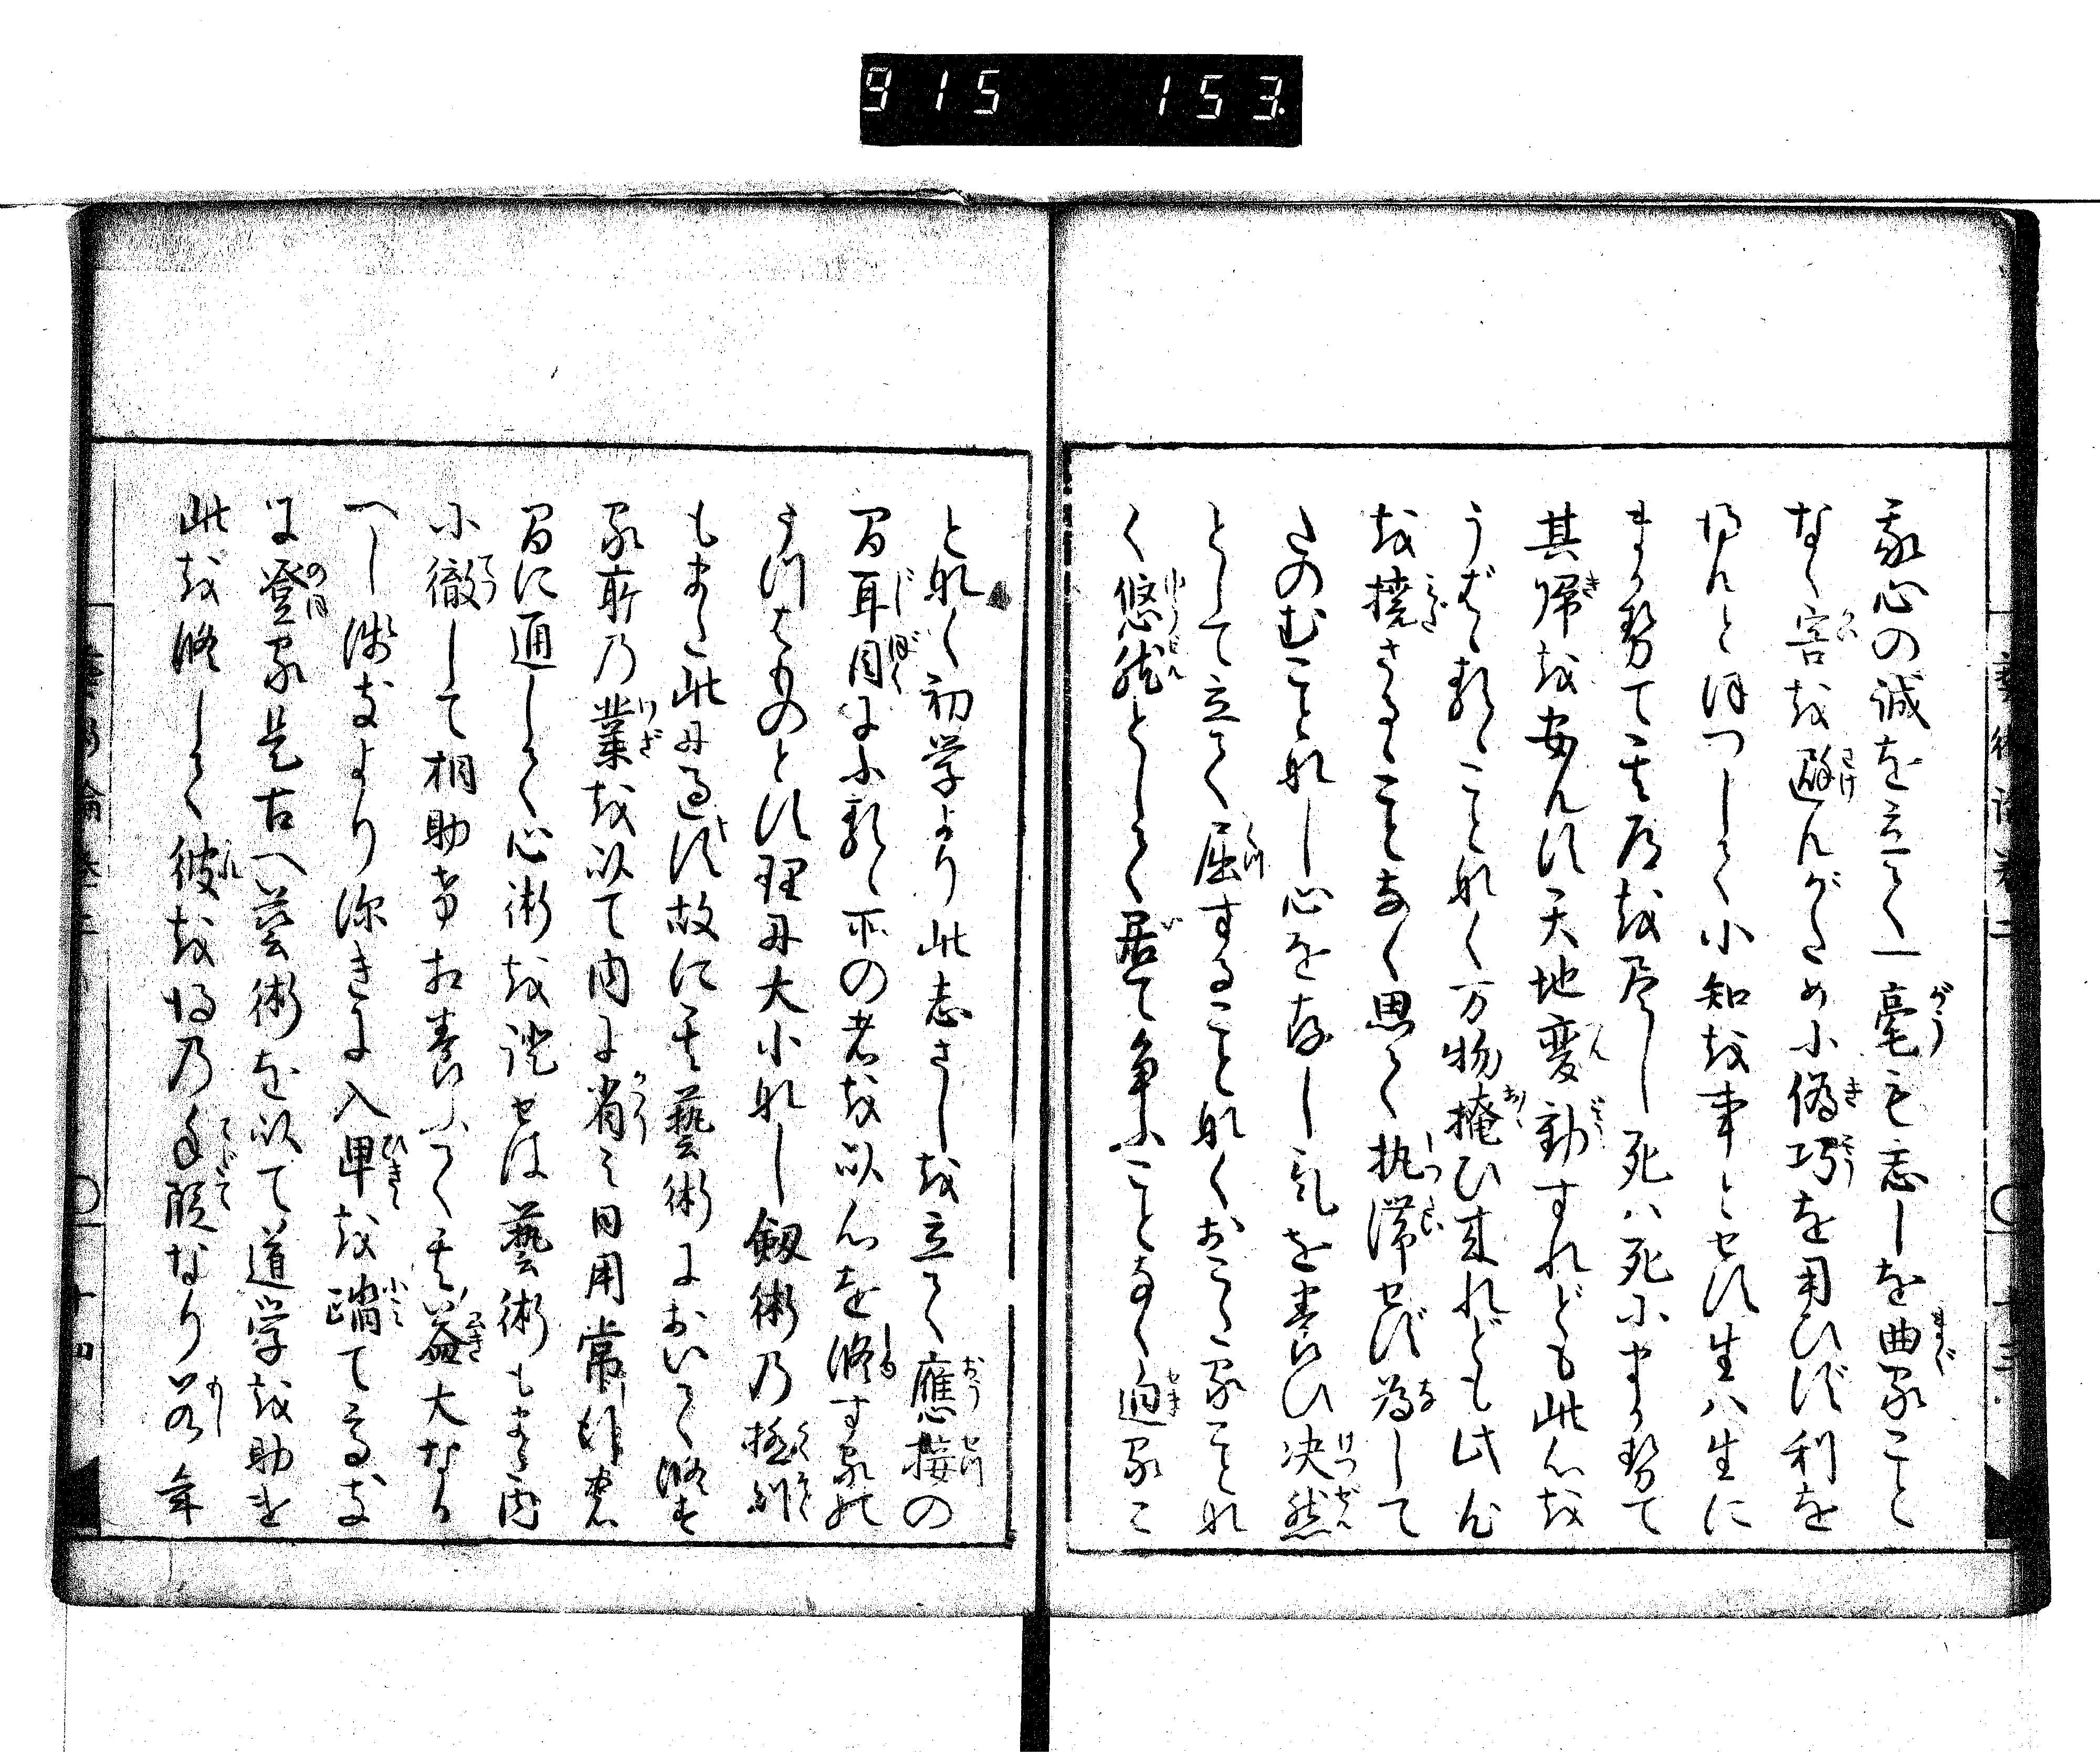 915 153
藝術論巻二 〇 十三
我心の誠を立て一毫も志しを曲ること
なく害を避んがため小偽巧を用ひず利を
得んとほつして小知を事とせず生ハ生に
まかせて其道を尽し死ハ死にまかせて
其帰を安んず天地変動すれども此心を
うばゝるゝことなく万物掩ひ来れども此心
を撓さるゝことなく思て執滞せず為して
たのむことなし心を存し氣を養ひ决然
として立て屈することなくおこることな
く悠然として居て争ふことなく迫るこ
となく初学より此志さしを立て應接の
間耳目にふるゝ所の者を以心を修する
もまた此に過ず故に其藝術において修す
る所乃業を以て内に省み日用常行の
間に通して心術を證せば藝術もまた内
に徹して相助け相養ふて其益大なる
べし浅きより深きに入卑を蹈て高き
に登る是古へ藝術を以て道学を助け
此を修して彼を得乃手段なり若年
藝術論巻二 〇 十四